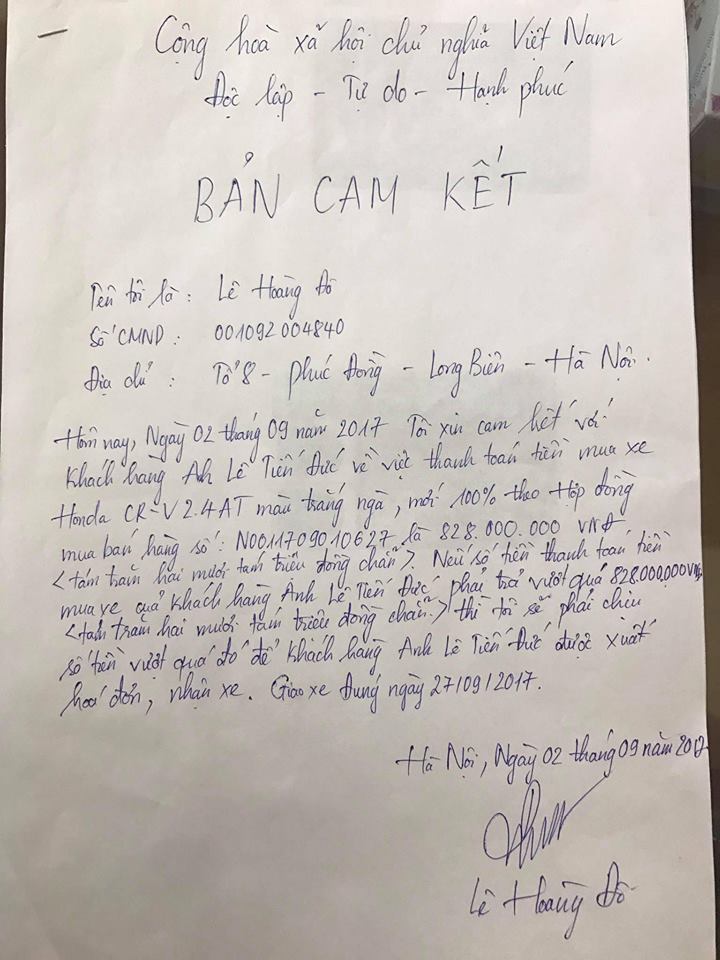 Cộng hoà xã hội chủ nghĩa Việt Nam
Độc lập - Tự do - Hạnh phúc
BẢN CAM KẾT
Tên tôi là : Lê Hoàng Đô
Số CMND : 001092004840
Địa chỉ : Tổ 8 - Phúc Đồng - Long Biên - Hà Nội.
Hôm nay, Ngày 02 tháng 09 năm 2017 Tôi xin cam kết với
Khách hàng Anh Lê Tiến Đức về việc thanh toán tiền mua xe
Honda CR-V 2.4AT màu trắng ngà, mới 100% theo Hợp đồng
mua bán hàng số : N0011709010627 là 828.000.000 VNĐ
<tám trăm hai mươi tám triệu đồng chẵn>. Nếu số tiền thanh toán tiền
mua xe quả Khách hàng Anh Lê Tiến Đức phải trả vượt quá 828.000,000VNĐ
<tám trăm hai mươi tám triệu đồng chẵn.> thì tôi sẽ phải chịu
số tiền vượt quá đó để Khách hàng Anh Lê Tiến Đức được xuất
hoá đơn, nhận xe. Giao xe Đúng ngày 27/09/2017.
Hà Nội, Ngày 02 tháng 09 năm 2017
Lê Hoàng Đô